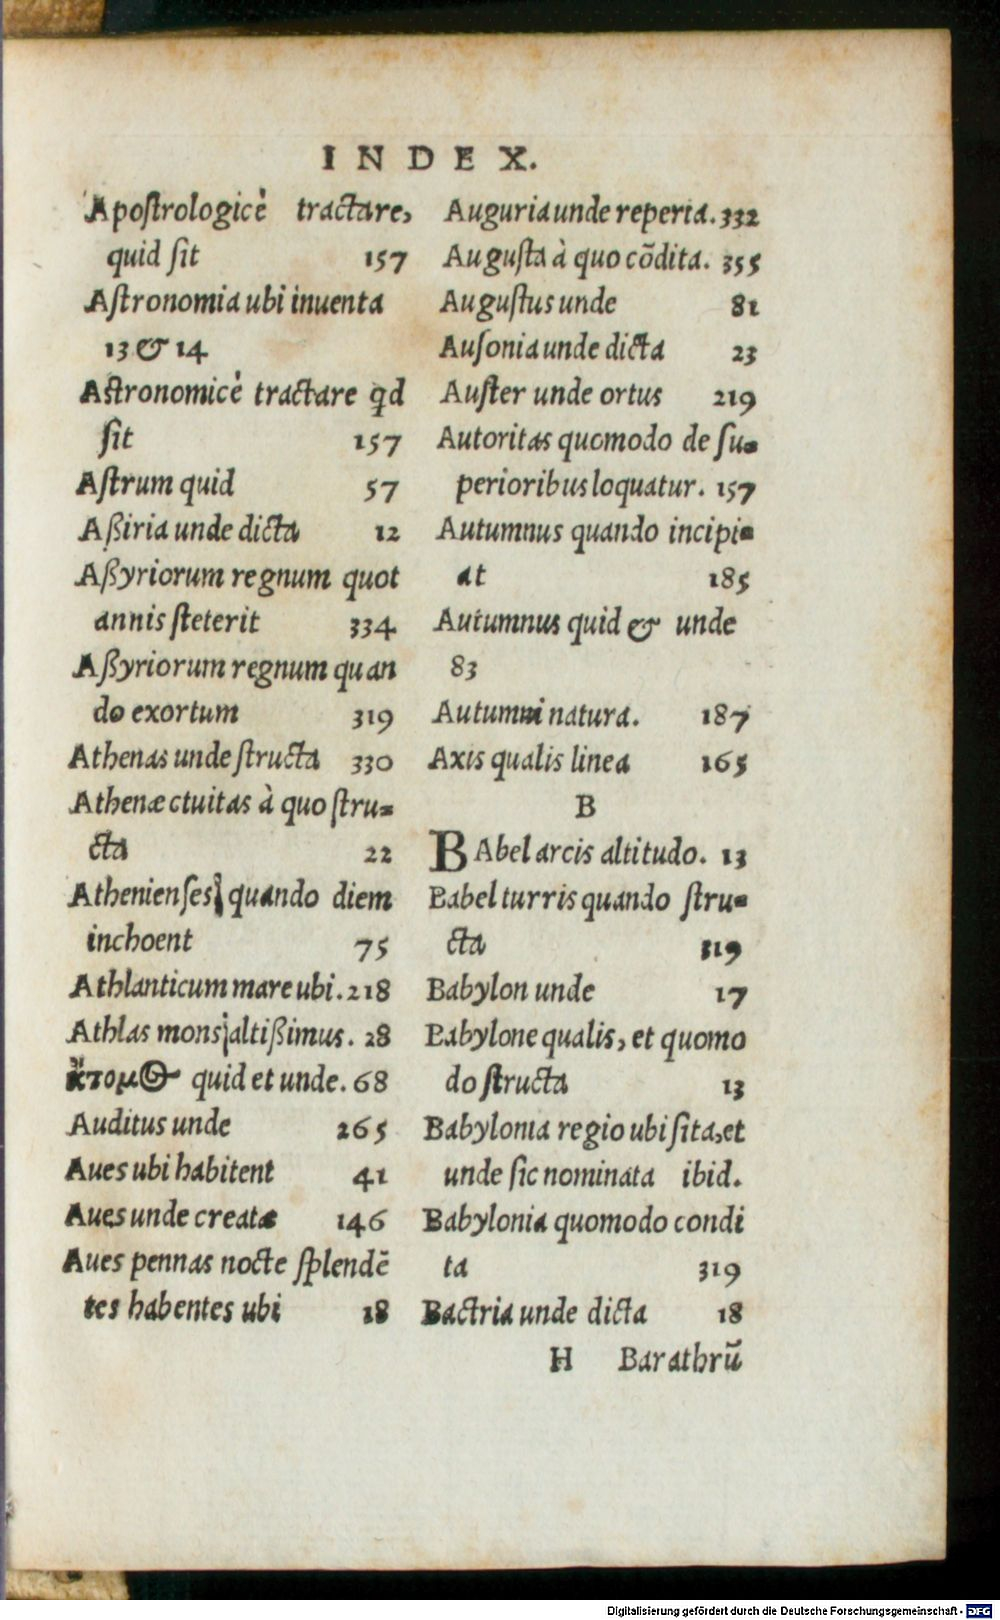 INDEX.
Apostrologicè tractare,
quid sit 157
Astronomia ubi inuenta
13 & 14
Astronomicè tractare qd
sit 157
Astrum quid 57
Aßiria unde dicta 12
Aßyriorum regnum quot
annis steterit 334
Aßyriorum regnum quan
do exortum 319
Athenas unde structa 330
Athenæ ctuitas à quo stru-
cta 22
Athenienses quando diem
inchoent 75
Athlanticum mare ubi. 218
Athlas mons altißimus. 28
quid et unde. 68
Auditus unde 265
Aues ubi habitent 41
Aues unde creatæ 146
Aues pennas nocte splendē
tes habentes ubi 18
Auguria unde reperta. 332
Augusta à quo cōdita. 355
Augustus unde 81
Ausonia unde dicta 23
Auster unde ortus 219
Autoritas quomodo de su-
perioribus loquatur. 157
Autumnus quando incipi-
at 185
Autumnus quid & unde
83
Autumni natura. 187
Axis qualis linea 165
B
BAbel arcis altitudo. 13
Babel turris quando stru-
cta 319
Babylon unde 17
Babylone qualis, et quomo
do structa 13
Babylonia regio ubi sita, et
unde sic nominata ibid.
Babylonia quomodo condi
ta 319
Bactria unde dicta 18
H Barathrū
Digitalisierung gefördert durch die Deutsche Forschungsgemeinschaft - DFG